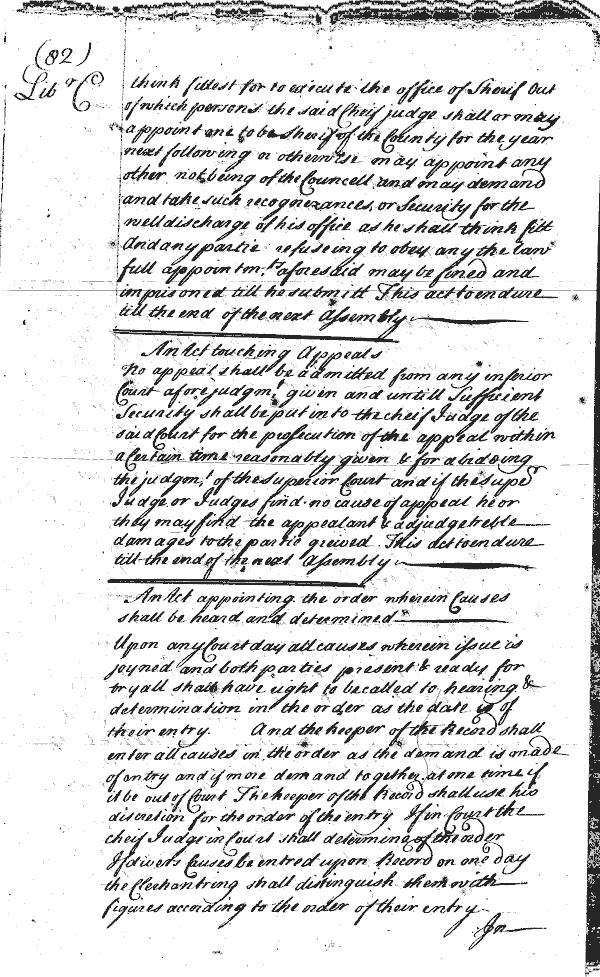 (82)
Lib r C
think fittest for to execute the office of Sherif Out
of which persons the said Cheif judge shall or may
appoint one to be sherif of the County for the year
next following or otherwise may appoint any
other not being of the Councell and may demand
and take such recognezances, or Security for the
well discharge of his office as he shall think fitt
And any partie refuseing to obey any the law
full appointm.t aforesaid may be fined and
imprisoned till he submitt This act to endure
till the end of the next Assembly
An Act touching Appeals
No appeal shall be admitted from any inferior
Court afore judgm.t given and untill Sufficient
Security shall be put in to the cheif Judge of the
said Court for the prosecution of the appeal within
a Certain time reasonably given & for abideing
the judgm.t of the superior Court and if the supe.r
Judge or Judges find no cause of appeal he or
they may find the appealant & adjudge treble
damages to the partie greived This act to endure
till the end of the next Assembly
An Act appointing the order wherein Causes
shall be heard and determined
Upon any Court day all causes wherein issue is
joyned and both parties present & ready for
tryall shall have right to be called to hearing &
determination in the order as the date is of
their entry. And the keeper of the Record shall
enter all causes in the order as the demand is made
of entry and if more demand together at one time if
it be out of Court The keeper of the Record shall use his
discretion for the order of the entry If in Court the
cheif Judge in Court shall determing of the order
If divers Causes be entred upon Record on one day
the Clerk entring shall distinguish them with
figures according to the order of their entry
In